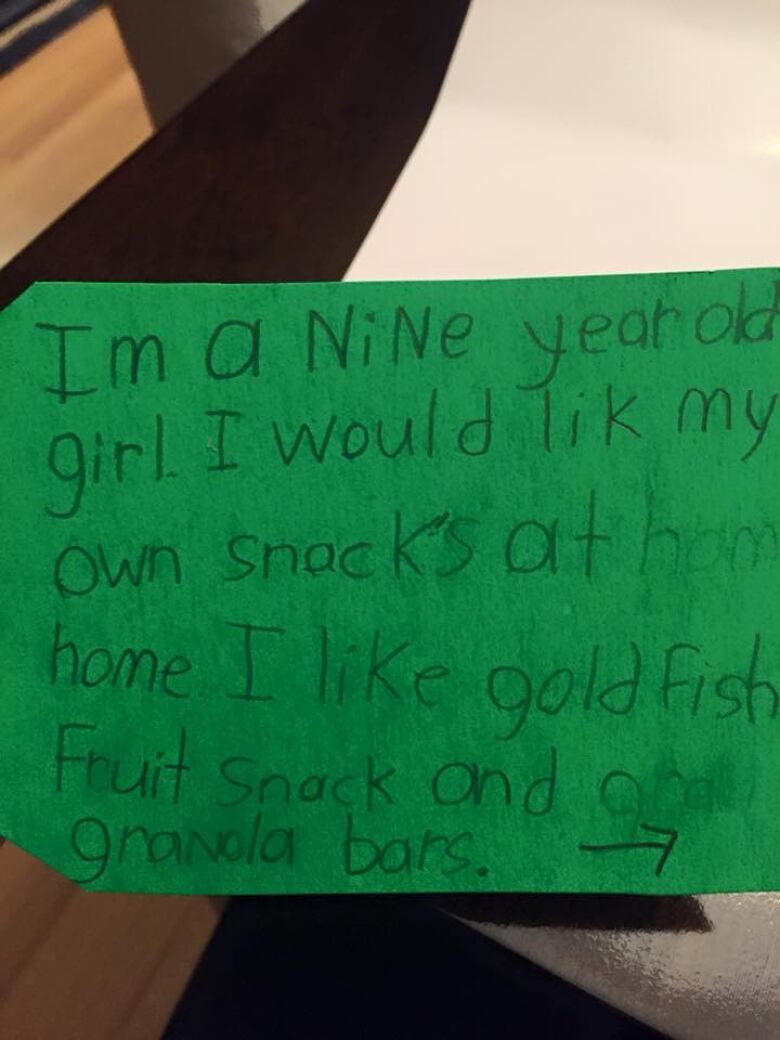 Im a NiNe year old
girl. I would lik my
own snack's at hom
home. I like gold fish
Fruit snack and gra
granola bars. →